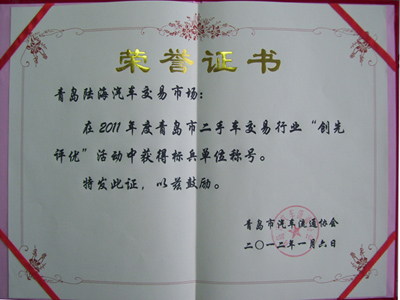 荣誉证书
青岛陆海汽车交易市场：
在2011年度青岛市二手车交易行业“创先
评优”活动中获得标兵单位称号。
特发此证，以兹鼓励。
青岛市汽车流通协会
二〇一二年一月六日